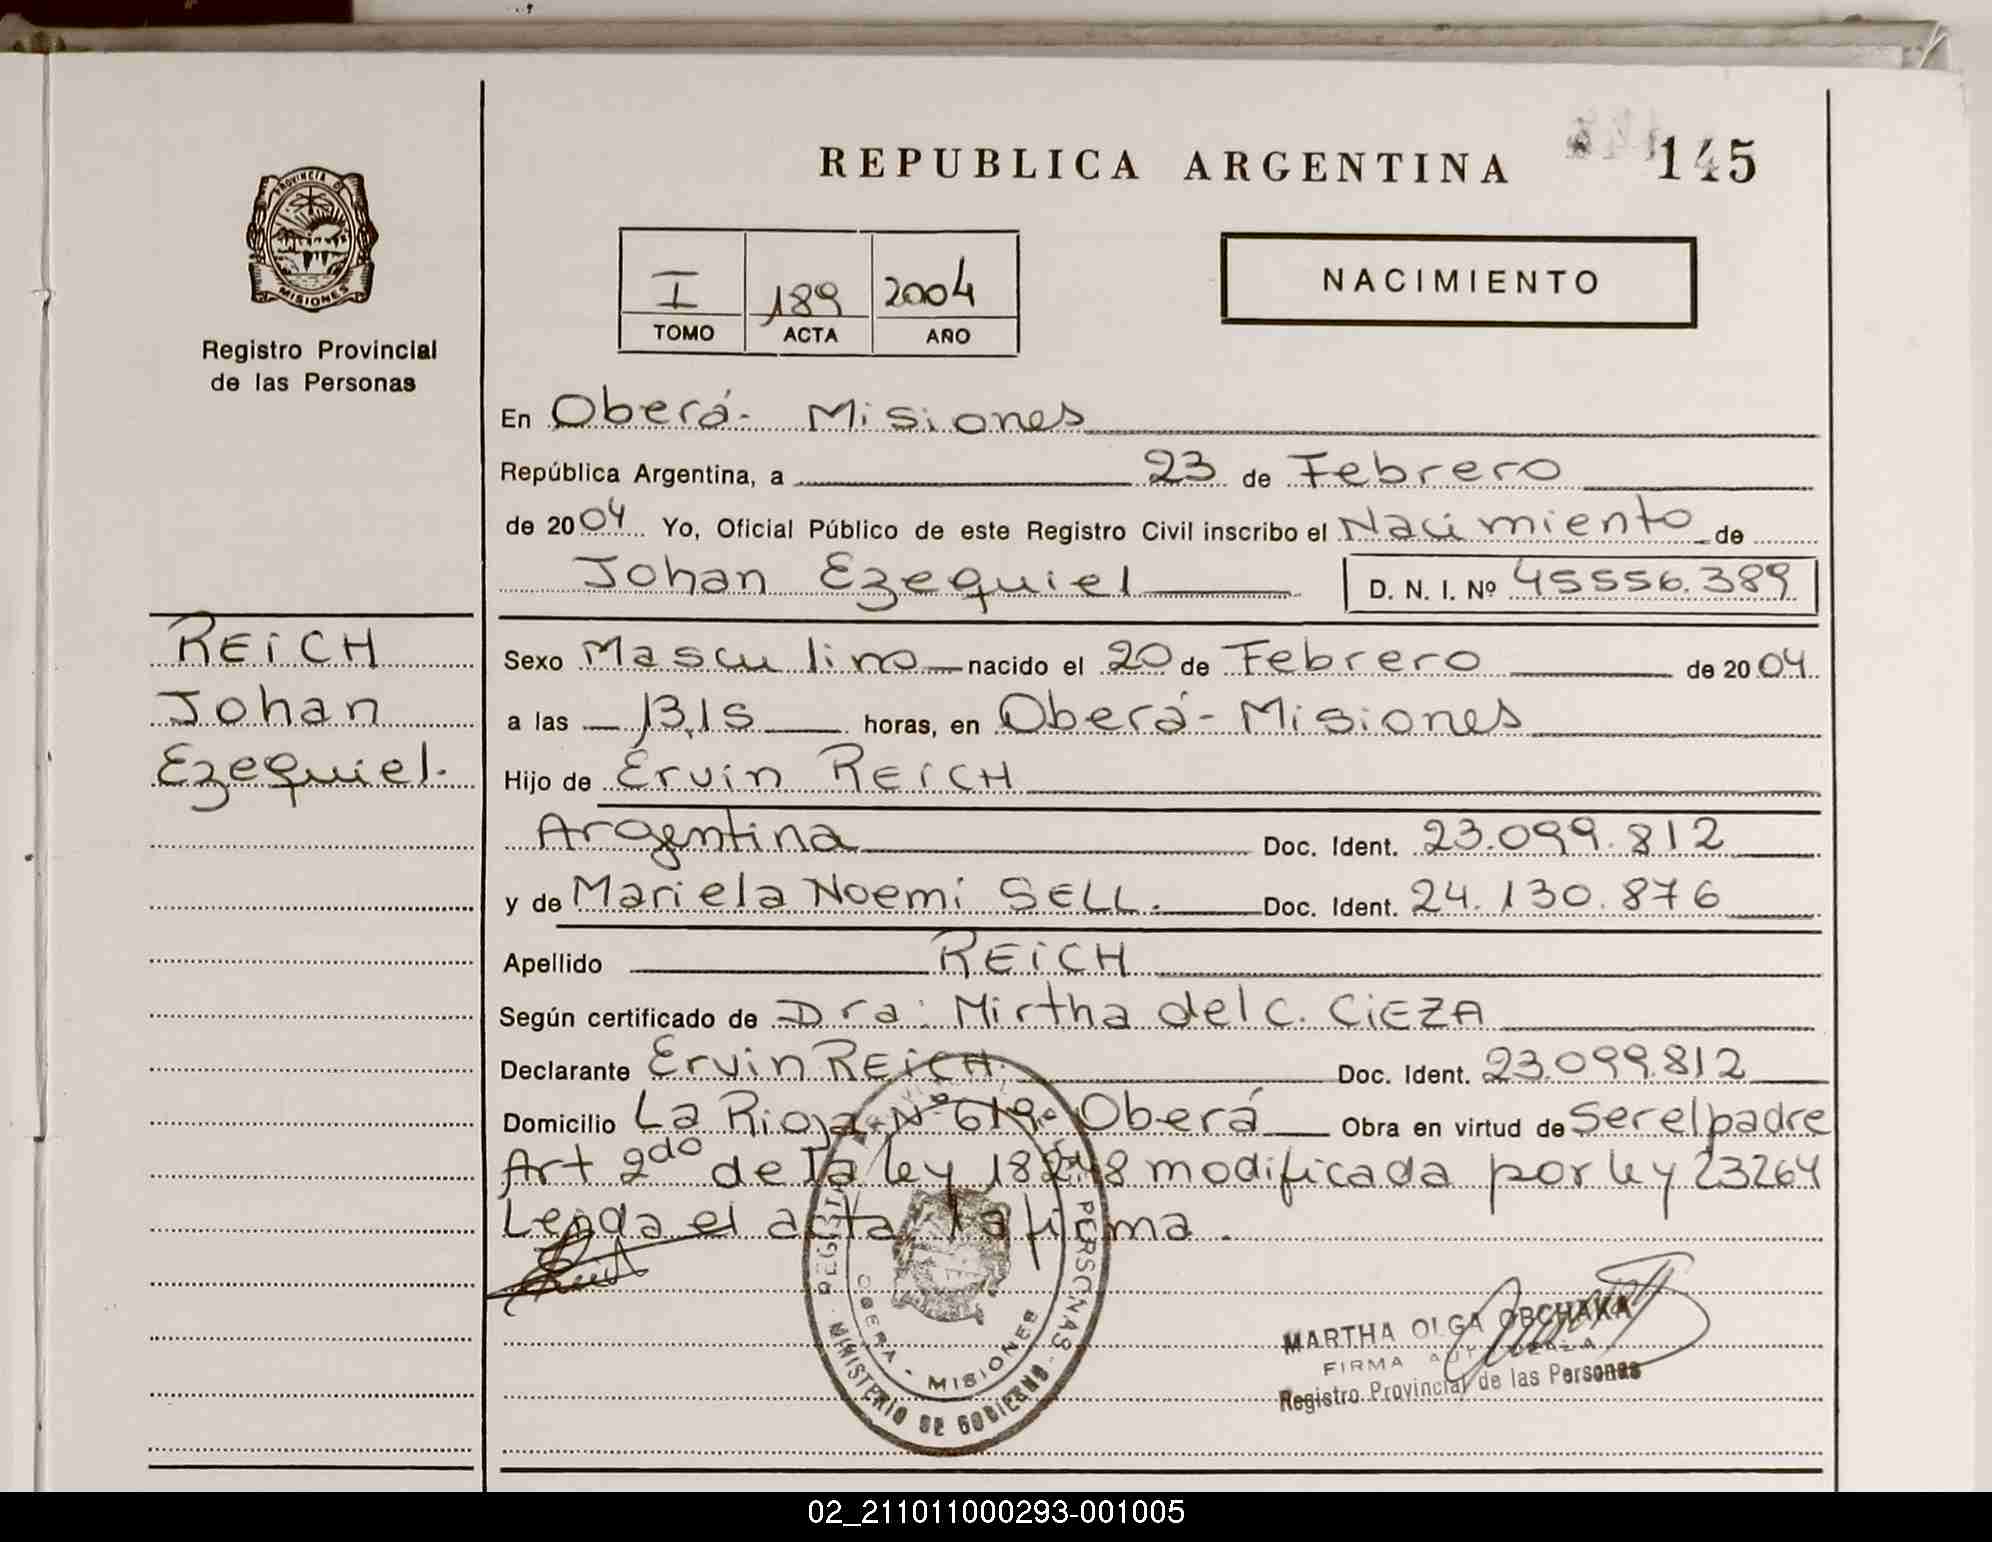 REPUBLICA ARGENTINA 145
PROVINCIA DE
MISIONES
Registro Provincial
de las Personas
I 189 2004
TOMO ACTA AÑO
NACIMIENTO
En Oberá- Misiones
República Argentina, a 23 de Febrero
de 2004 Yo, Oficial Público de este Registro Civil inscribo el Nacimiento de
Johan Ezequiel D. N. I. Nº 45556.389
REICH
Johan
Ezequiel.
Sexo Masculino nacido el 20 de Febrero de 2004.
a las 13,15 horas, en Oberá- Misiones
Hijo de Ervin REICH
Argentina Doc. Ident. 23.099.812
y de Mariela Noemi SELL. Doc. Ident. 24.130.876
Apellido REICH
Según certificado de Dra: Mirtha del C. CIEZA
Declarante Ervin REICH. Doc. Ident. 23.099.812
Domicilio La Rioja Nº 619- Oberá Obra en virtud de Ser el padre
Art 2do de la ley 18248 modificada por ley 23264
Leida el acta la firma.
PERSONAS
OBERA - MISIONES
MINISTERIO DE GOBIERNO
MARTHA OLGA OBCHAKA
FIRMA AUTORIZADA
Registro Provincial de las Personas
02_211011000293-001005